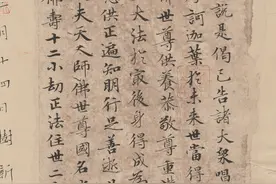 說是偈已告諸大眾唱
訶迦葉於未來世當得
世尊供養恭敬尊重
大法於最後身得成為
供正遍知明行足善逝
夫天人師佛世尊國名
佛壽十二小劫正法住世二